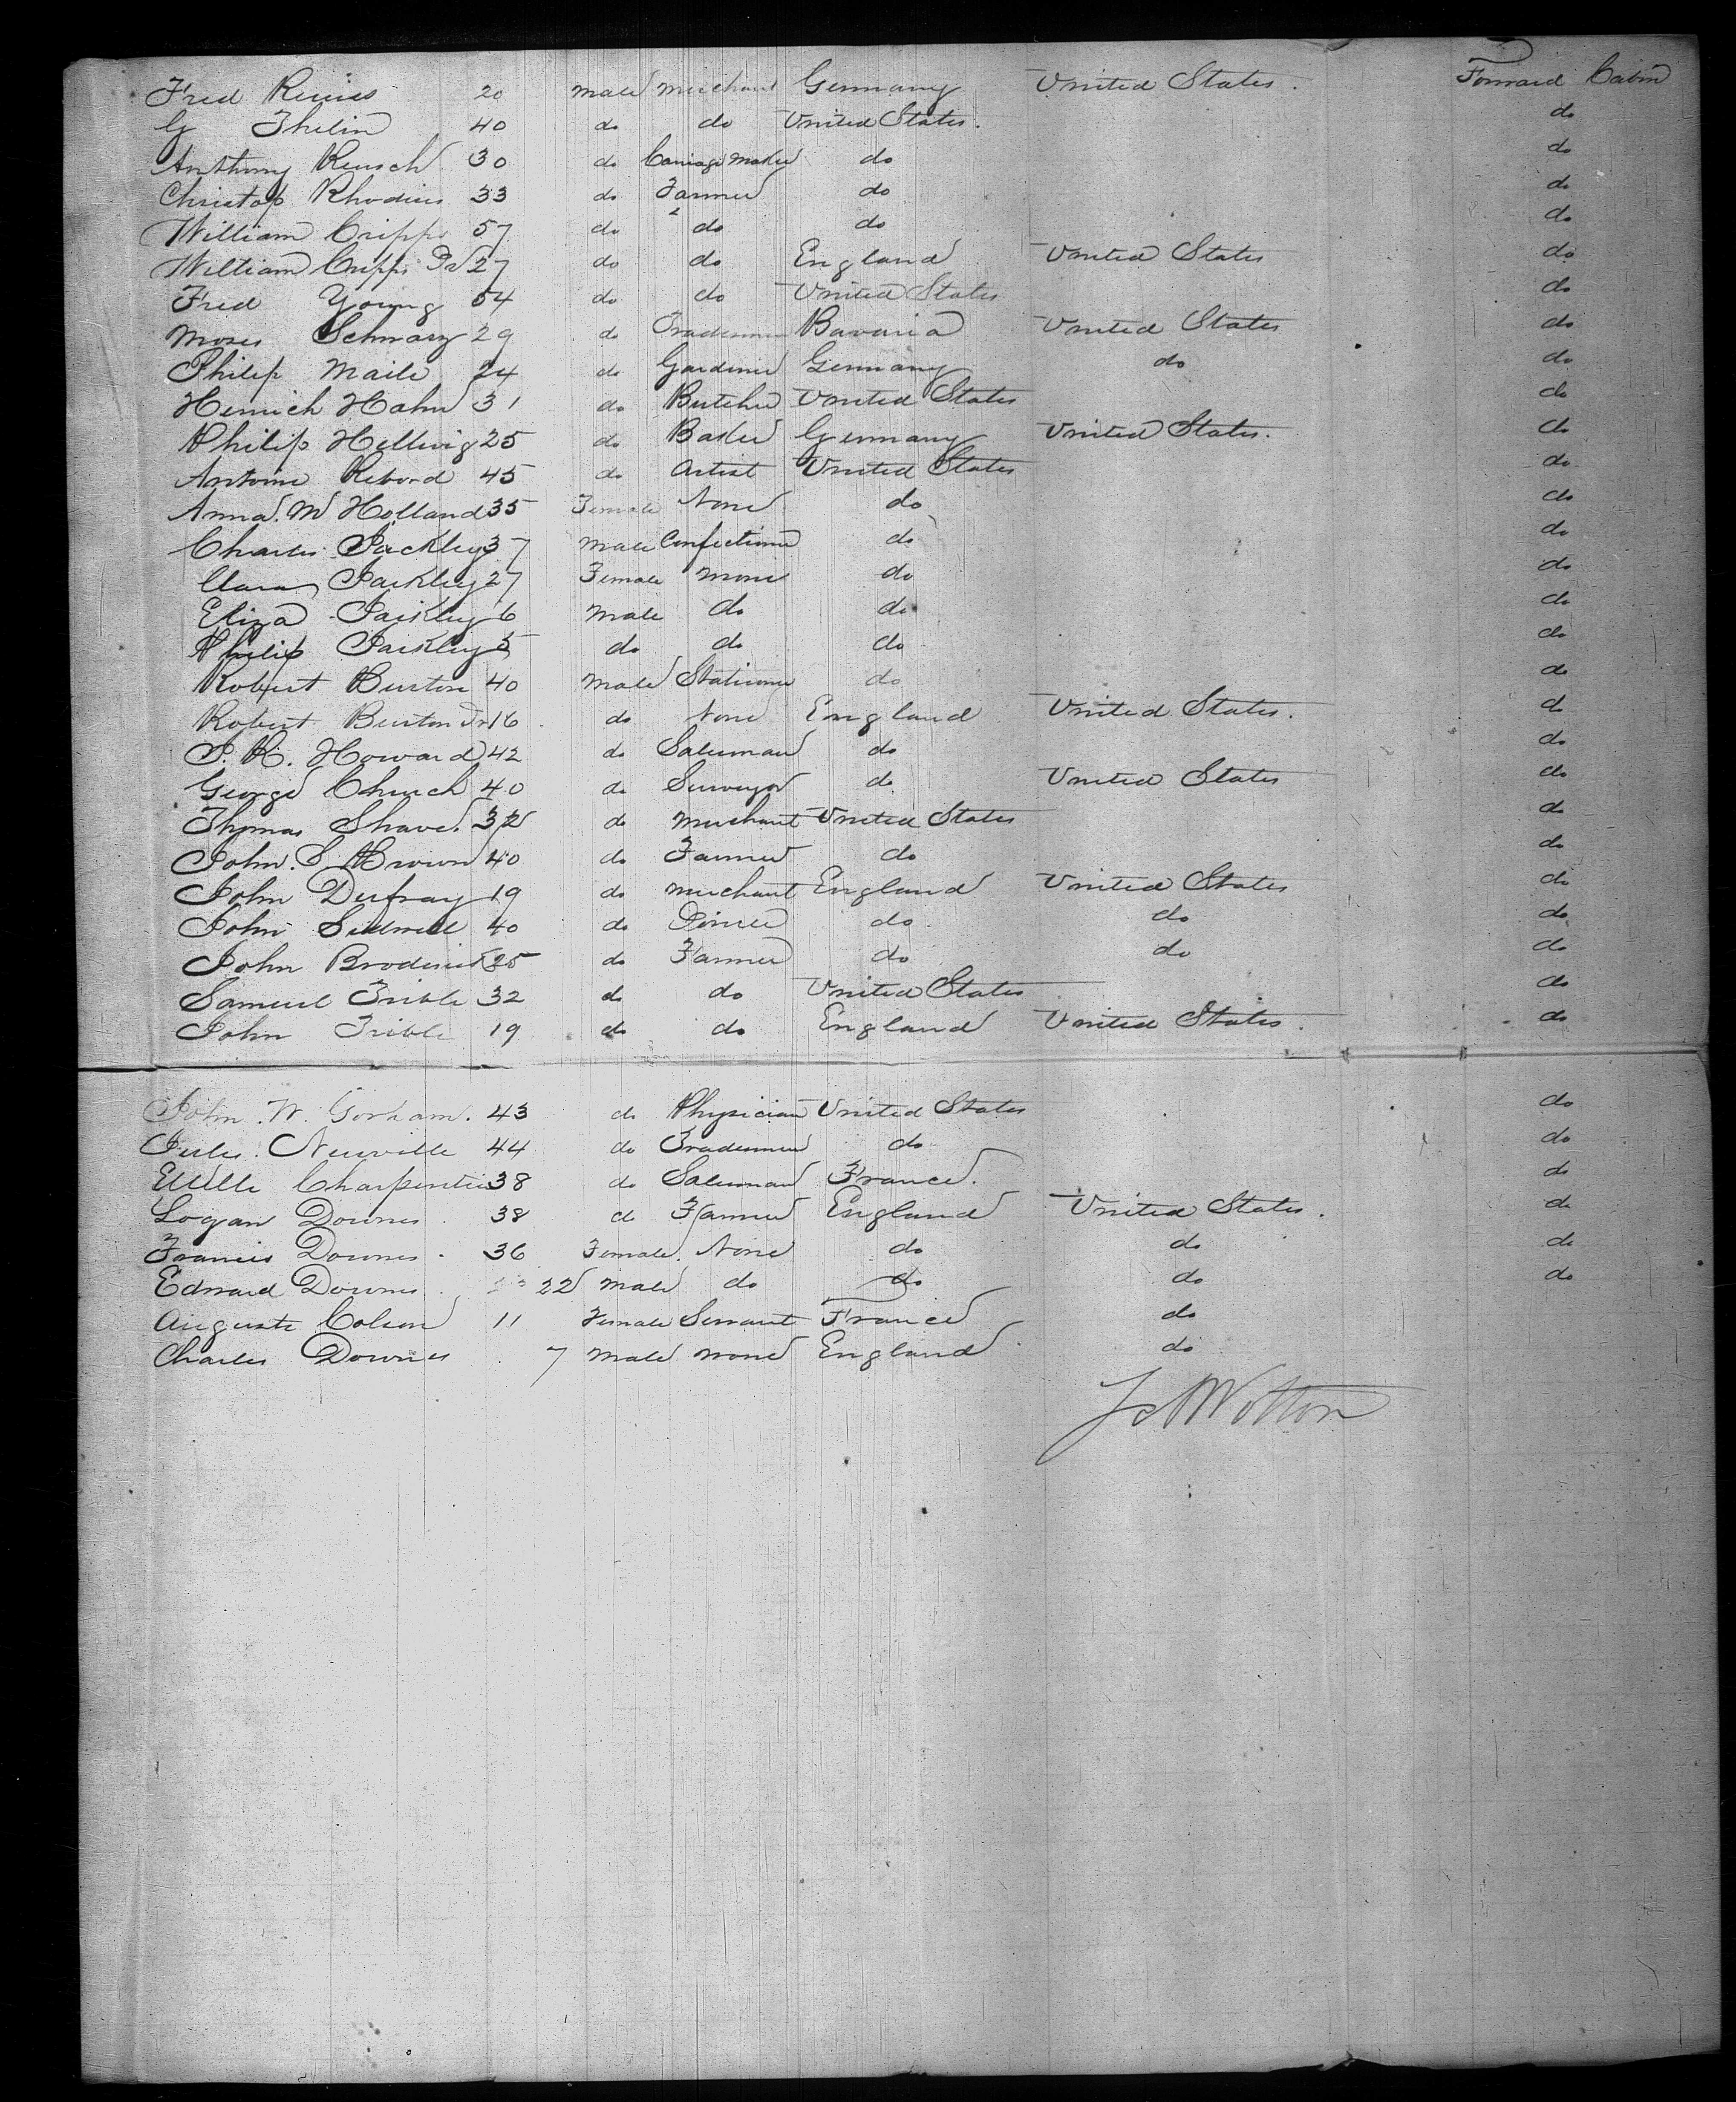 Fred Reines 20 male merchant Germany United States. Forward Cabin
G Thelin 40 do do United States. do
Anthony Reusch 30 do Carriage Maker do do
Christop Rhodius 33 do Farmer do do
William Cripps 57 do do do do
William Cripps Jr 27 do do England United States do
Fred Young 54 do do United States do
Moses Schwarz 29 do Tradesman Bavaria United States do
Philip Maile 24 do Gardiner Germany do do
Henrich Hahn 31 do Butcher United States do
Philip Hellwig 25 do Baker Germany United States. do
Antoine Rebord 45 do Artist United States do
Anna. M Holland 35 Female None do do
Charles Packley 37 male Confectioner do do
Clara Packley 27 Female none do do
Eliza Packley 6 male do do do
Philip Packley 5 do do do do
Robert Burton 40 male Stationer do do
Robert Burton Jr 16 do None England United States. do
J. K. Howard 42 do Salesman do do
George Church 40 do Surveyor do United States do
Thomas Shave. 32 do merchant United States do
John. S Brown 40 do Farmer do do
John Dufray 19 do merchant England United States do
John Sidwell 40 do do do do
John 25 do Farmer do do do
Samuel Trible 32 do do United States do
John Trible 19 do do England United States. do
John. W. Gorham. 43 do Physician United States do
Jules. Neuville 44 do Tradesman do do
Charpentier 38 do Salesman France. do
Logan Downes 38 do Farmer England United States. do
Francis Downes. 36 Female. None do do do
Edward Downes. 22 male do do do do
Auguste Colson 11 Female Servant France do
Charles Downes 7 male none England do